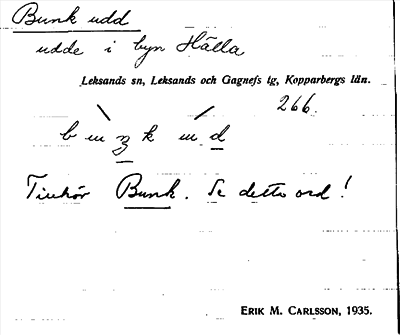 Bunk udd
udde i byn Hälla
Leksands sn, Leksands och Gagnefs tg, Kopparbergs län.
266.
Tillhör Bunk. Se detta ord!
ERIK M. CARLSSON, 1935.